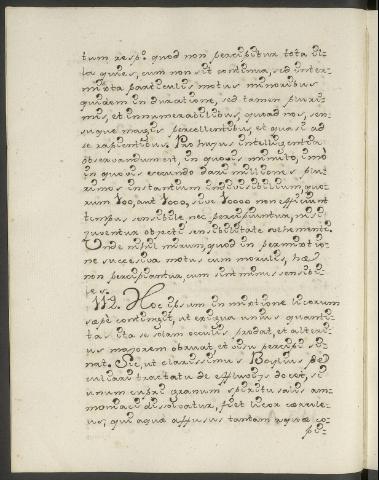 tum resp.o quod non percipitur tota il-
la quies, cum non sit continua, sed inter-
mixta particulis motus minoribus
quidem in duratione, sed tamen pluri-
mis, et innumerabilibus, quoad nos, sen-
sugue magis percellentibus et quasi ad
se rapientibus. Pro hujus intelligentia
observandum est, in quovis minuto, imò
in quovis secundo dari miliones plu-
rimos instantium indivisibilium, quo-
rum 100, aut 1000, sive 10000 non efficiunt
tempus sensibile nec percipiuntur, nisi
juventur objecti sensibilitate vehementi.
Unde nihil mirum, quod in permixtio-
ne successiva motus cum morulis, hæ
non percipiantur, cum sint minus sensibi-
les.
112. Hoc ipsum in mixtione licorum
sæpè contingit, ut exigua unius quanti-
tas ita se solam oculis prodat, et alteri-
us majorem obruat, et visu percipi si-
nat. Sic, ut clarissimus Boylius pe-
culiari tractatu de effluviis docet, si
unum cupri granum spiritu salis am-
moniaci dissolvatur, fiet licor cærule-
us, qui aquæ affusus tantam aquæ co-
pi-